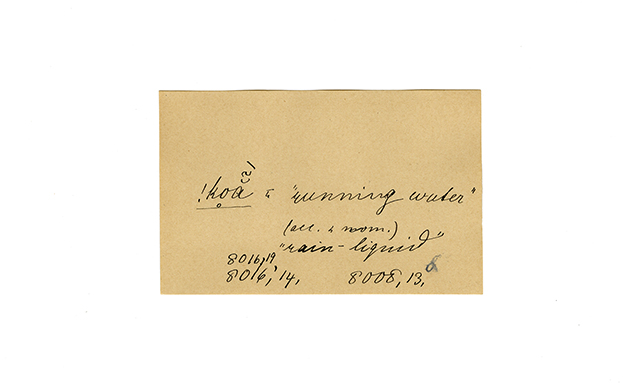 !k̥oā (2) = "running water"
(acc. & nom.)
"rain-liquid"
8016,19
8016, 14, 8008, 13,